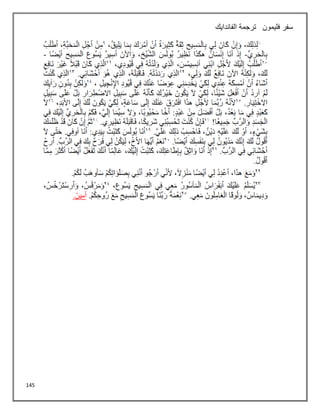 سفر فليمون ترجمة الفاندايك
⁸لِذلِكَ، وَإِنْ كَانَ لِي بِالْمَسِيحِ ثِقَةٌ كَثِيرَةٌ أَنْ آمُرَكَ بِمَا يَلِيقُ، ⁹مِنْ أَجْلِ الْمَحَبَّةِ، أَطْلُبُ
بِالْحَرِيِّ­ إِذْ أَنَا إِنْسَانٌ هكَذَا نَظِيرُ بُولُسَ الشَّيْخِ، وَالآنَ أَسِيرُ يَسُوعَ الْمَسِيحِ أَيْضًا -
¹⁰أَطْلُبُ إِلَيْكَ لأَجْلِ ابْنِي أُنِسِيمُسَ، الَّذِي وَلَدْتُهُ فِي قُيُودِي، ¹¹الَّذِي كَانَ قَبْلاً غَيْرَ نَافِعٍ
لَكَ، وَلكِنَّهُ الآنَ نَافِعٌ لَكَ وَلِي، ¹²الَّذِي رَدَدْتُهُ. فَاقْبَلْهُ، الَّذِي هُوَ أَحْشَائِي. ¹³الَّذِي كُنْتُ
أَشَاءُ أَنْ أُمْسِكَهُ عِنْدِي لِكَيْ يَخْدِمَنِي عِوَضًا عَنْكَ فِي قُيُودِ الإِنْجِيلِ، ¹⁴وَلكِنْ بِدُونِ رَأْيِكَ
لَمْ أُرِدْ أَنْ أَفْعَلَ شَيْئًا، لِكَيْ لاَ يَكُونَ خَيْرُكَ كَأَنَّهُ عَلَى سَبِيلِ الاضْطِرَارِ بَلْ عَلَى سَبِيلِ
الاخْتِيَارِ. ¹⁵لأَنَّهُ رُبَّمَا لأَجْلِ هذَا افْتَرَقَ عَنْكَ إِلَى سَاعَةٍ، لِكَيْ يَكُونَ لَكَ إِلَى الأَبَدِ، ¹⁶لاَ
كَعَبْدٍ فِي مَا بَعْدُ، بَلْ أَفْضَلَ مِنْ عَبْدٍ: أَخًا مَحْبُوبًا، وَلاَ سِيَّمَا إِلَيَّ، فَكَمْ بِالْحَرِيِّ إِلَيْكَ فِي
الْجَسَدِ وَالرَّبِّ جَمِيعًا! ¹⁷فَإِنْ كُنْتَ تَحْسِبُنِي شَرِيكًا، فَاقْبَلْهُ نَظِيرِي. ¹⁸ثُمَّ إِنْ كَانَ قَدْ ظَلَمَكَ
بِشَيْءٍ، أَوْ لَكَ عَلَيْهِ دَيْنٌ، فَاحْسِبْ ذلِكَ عَلَيَّ. ¹⁹أَنَا بُولُسَ كَتَبْتُ بِيَدِي: أَنَا أُوفِي. حَتَّى لاَ
أَقُولُ لَكَ إِنَّكَ مَدْيُونٌ لِي بِنَفْسِكَ أَيْضًا. ²⁰نَعَمْ أَيُّهَا الأَخُ، لِيَكُنْ لِي فَرَحٌ بِكَ فِي الرَّبِّ. أَرِحْ
أَحْشَائِي فِي الرَّبِّ. ²¹إِذْ أَنَا وَاثِقٌ بِإِطَاعَتِكَ، كَتَبْتُ إِلَيْكَ، عَالِمًا أَنَّكَ تَفْعَلُ أَيْضًا أَكْثَرَ مِمَّا
أَقُولُ.
²²وَمَعَ هذَا، أَعْدِدْ لِي أَيْضًا مَنْزِلاً، لأَنِّي أَرْجُو أَنَّنِي بِصَلَوَاتِكُمْ سَأُوهَبُ لَكُمْ.
²³يُسَلِّمُ عَلَيْكَ أَبَفْرَاسُ الْمَأْسُورُ مَعِي فِي الْمَسِيحِ يَسُوعَ، ²⁴وَمَرْقُسُ، وَأَرِسْتَرْخُسُ،
وَدِيمَاسُ، وَلُوقَا الْعَامِلُونَ مَعِي. ²⁵نِعْمَةُ رَبِّنَا يَسُوعَ الْمَسِيحِ مَعَ رُوحِكُمْ. آمِينَ.
145